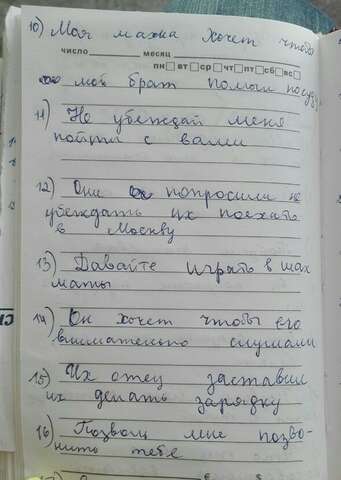 10) Моя мама хочет чтобы
число месяц
пн вт ср чт пт сб вс
мой брат помыл посуду
11) Не убеждай меня
пойти с вами
12) Они попросили не
убеждать их поехать
в Москву
13) Давайте играть в шах
маты
14) Он хочет чтобы его
внимательно слушали
15) Их отец заставил
их делать зарядку
16) Позволь мне позво-
нить тебе